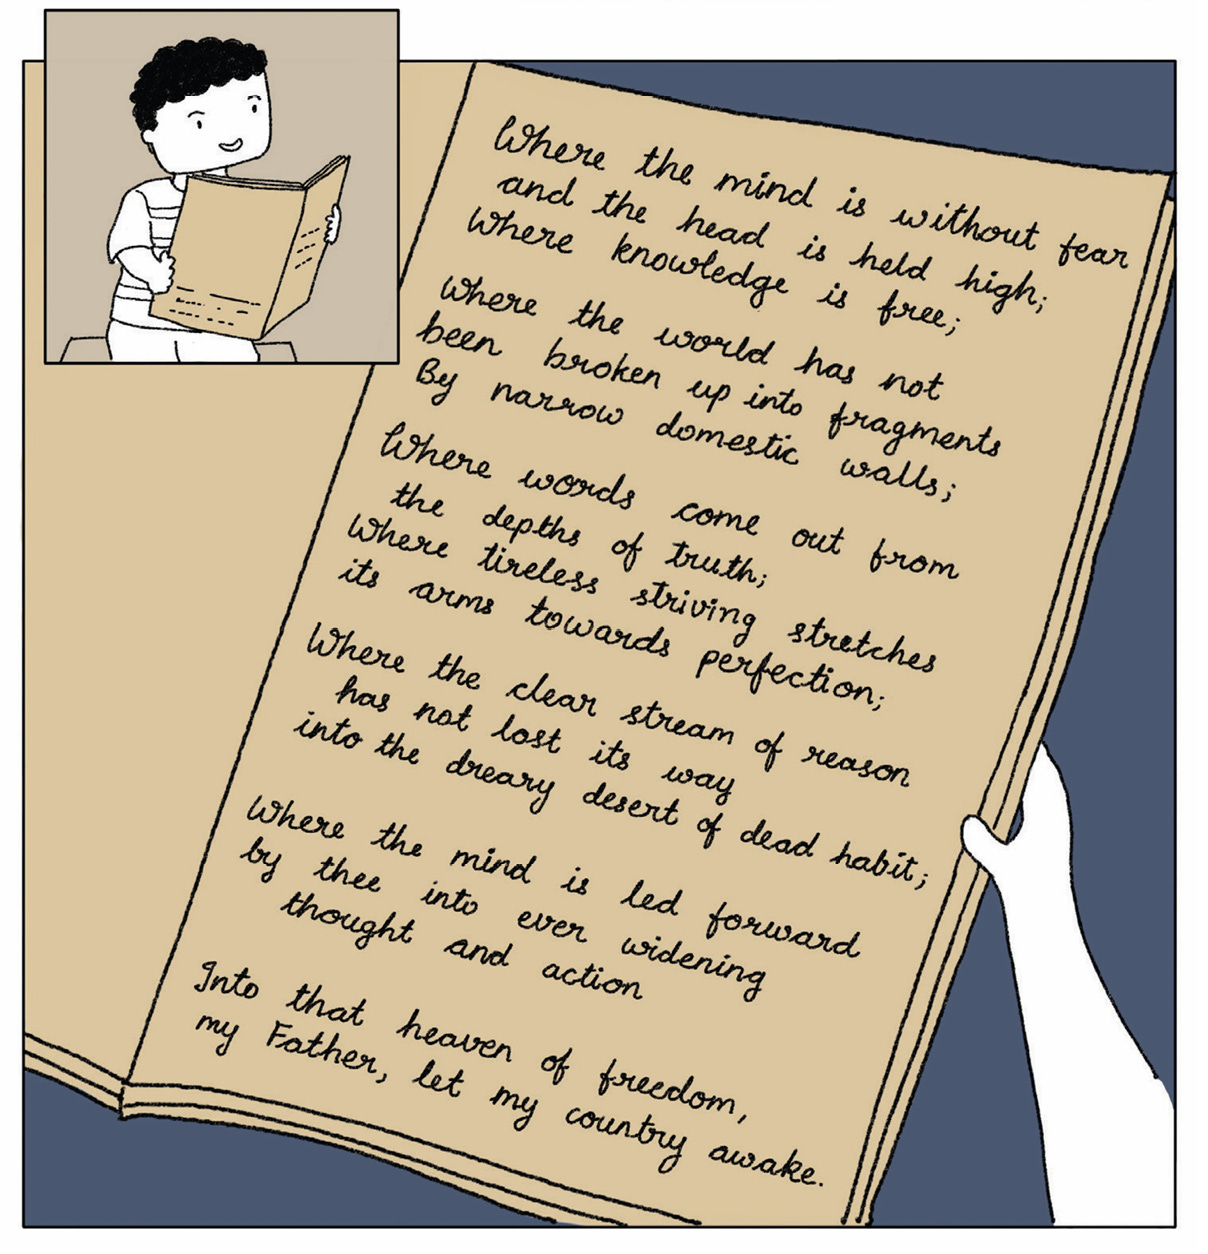 Where the mind is without fear
and the head is held high;
Where knowledge is free;
Where the world has not
been broken up into fragments
By narrow domestic walls;
Where words come out from
the depths of truth;
Where tireless striving stretches
its arms towards perfection;
Where the clear stream of reason
has not lost its way
into the dreary desert of dead habit;
Where the mind is led forward
by thee into ever widening
thought and action
Into that heaven of freedom,
my Father, let my country awake.